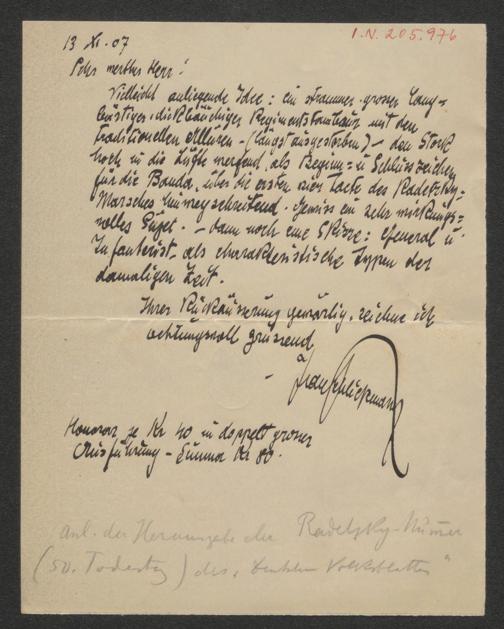 13 XI. 07
I.N. 205.976
Sehr werther Herr!
Vielleicht anliegende Idee: ein strammer, grosser
dickbäuchiger Regimentstambour mit den
traditionellen Allüren - (längst ausgestorben) - den Stock
hoch in die Lüfte werfend, als Beginn- u Schlusszeichen
für die Banda, über die ersten vier Takte des Radetzky-
Marsches hinwegschreitend. Gewiss ein sehr wirkungs-
volles Sujet. - Dann noch eine Skizze: General u.
Infanterist, als charakteristische Typen der
damaligen Zeit.
Ihrer Rückäusserung gewärtig, zeichne ich
achtungsvoll grüssend
Schliessmann
Honorar je Kr 40 in doppelt grosser
Ausführung - Summa Kr 80.
anl. der Herausgabe der Radetzky-Nummer
(50. Todestag) des "Deutschen Volksblattes"